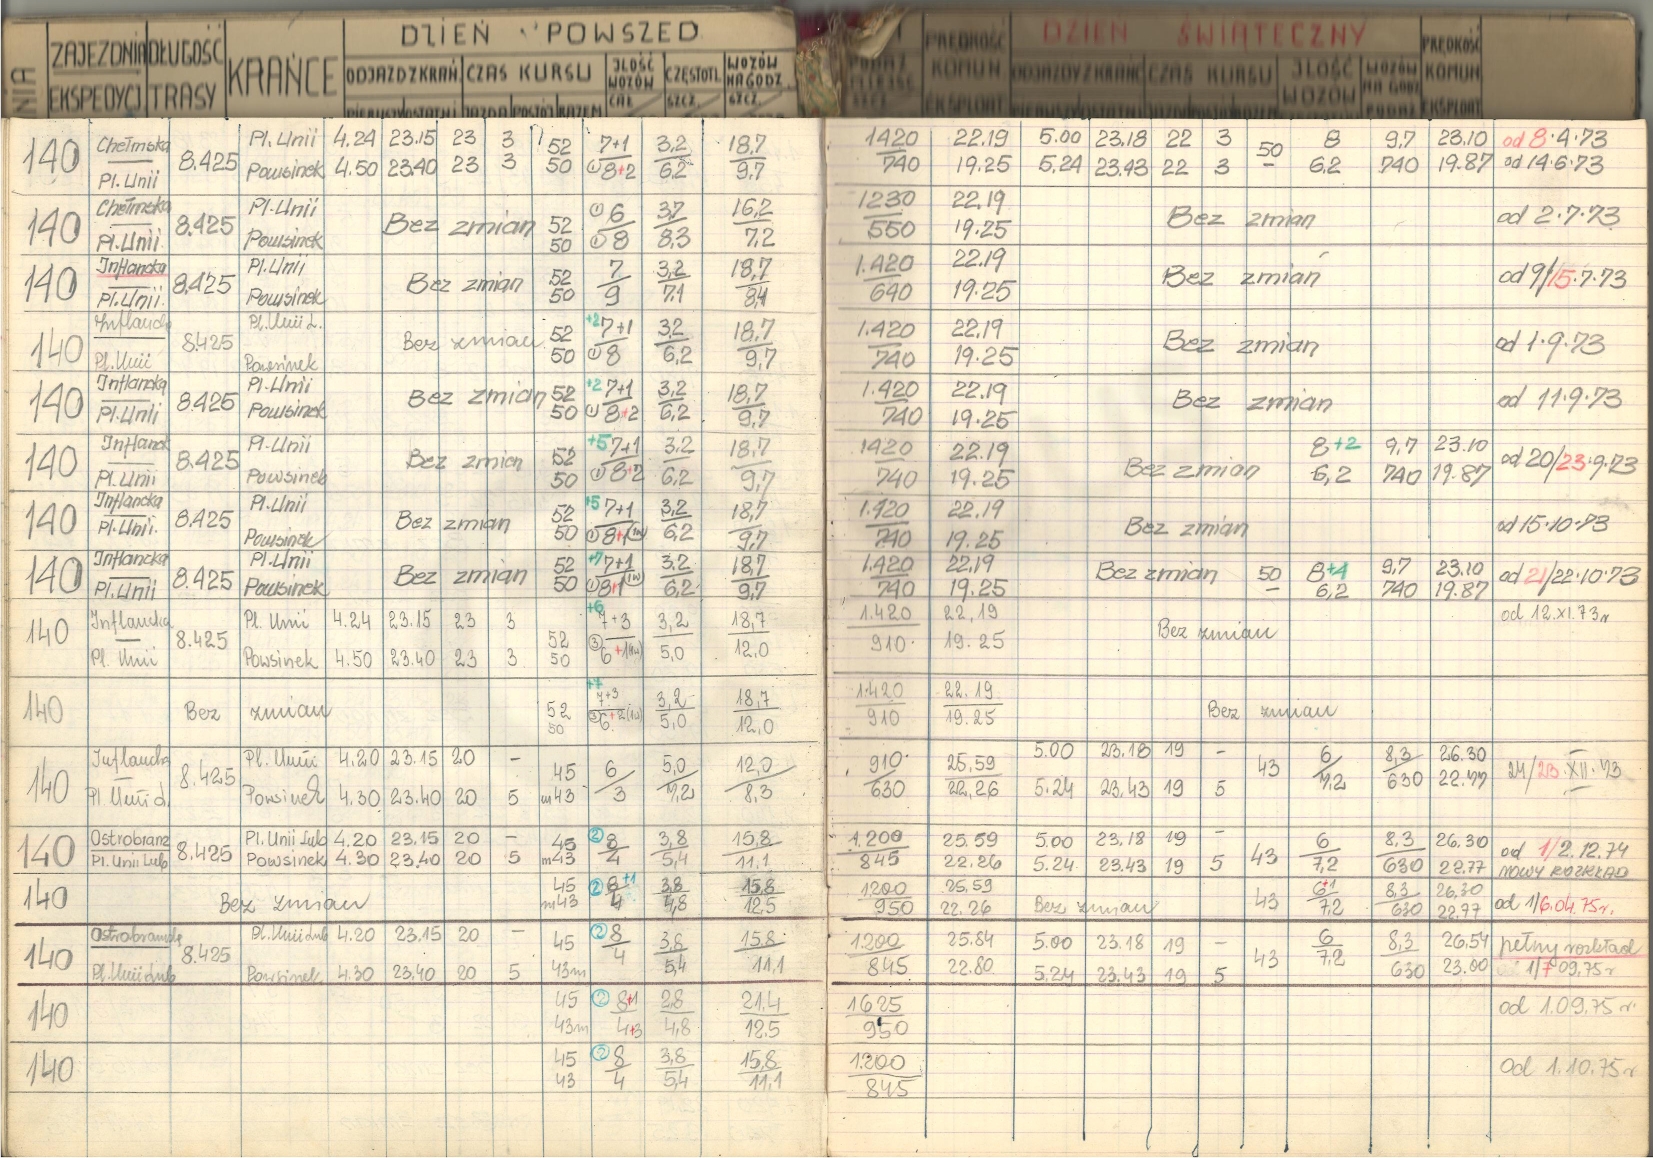 DZIEŃ POWSZED
DZIEŃ ŚWIĄTECZNY
ZAJEZDNIA DŁUGOŚĆ KRAŃCE ODJAZD Z KRAŃ. CZAS KURSU ILOŚĆ WOZÓW CZĘSTOTL. WOZÓW NA GODZ. PRĘDKOŚĆ KOMUN ODJAZDY Z KRAŃC CZAS KURSU ILOŚĆ WOZÓW WOZÓW NA GODZ PRĘDKOŚĆ KOMUN
EKSPEDYCJ TRASY PIERWSZY OSTATNI JAZDA POSTÓJ RAZEM SZCZ. SZCZ. EKSPLOAT EKSPLOAT
140 Chełmska 8.425 Pl. Unii 4.24 23.15 23 3 52 7+1 3,2 18,7 1420 22.19 5.00 23.18 22 3 50 8 9,7 23.10 od 8.4.73
Pl. Unii Powsinek 4.50 23.40 23 3 50 8+2 6,2 9,7 740 19.25 5.24 23.43 22 3 – 6,2 740 19.87 od 14.6.73
140 Chełmska 8.425 Pl. Unii Bez zmian 52 6 3,7 16,2 1230 22.19 Bez zmian od 2.7.73
Pl. Unii Powsinek 50 8 8,3 7,2 550 19.25
140 Inflancka 8.425 Pl. Unii Bez zmian 52 7 3,2 18,7 1.420 22.19 Bez zmian od 9/15.7.73
Pl. Unii. Powsinek 50 9 7,1 8,4 640 19.25
140 Inflancka 8.425 Pl. Unii L. Bez zmian 52 +2 7+1 3,2 18,7 1.420 22.19 Bez zmian od 1.9.73
Pl. Unii Powsinek 50 8 6,2 9,7 740 19.25
140 Inflancka 8.425 Pl. Unii Bez zmian 52 +2 7+1 3,2 18,7 1.420 22.19 Bez zmian od 11.9.73
Pl. Unii Powsinek 50 8+2 6,2 9,7 740 19.25
140 Inflanck 8.425 Pl. Unii Bez zmian 52 +5 7+1 3,2 18,7 1420 22.19 Bez zmian 8+2 9,7 23.10 od 20/23.9.73
Pl. Unii Powsinek 50 8+2 6,2 9,7 740 19.25 6,2 740 19.87
140 Inflancka 8.425 Pl. Unii Bez zmian 52 +5 7+1 3,2 18,7 1.420 22.19 Bez zmian od 15.10.73
Pl. Unii. Powsinek 50 8+1(1w) 6,2 9,7 740 19.25
140 Inflancka 8.425 Pl. Unii Bez zmian 52 +7 7+1 3,2 18,7 1.420 22.19 Bez zmian 50 8+4 9,7 23.10 od 21/22.10.73
Pl. Unii Powsinek 50 8+1(1w) 6,2 9,7 740 19.25 – 6,2 740 19.87
140 Inflancka 8.425 Pl. Unii 4.24 23.15 23 3 52 +6 7+3 3,2 18,7 1.420 22,19 Bez zmian od 12.XI.73r
Pl. Unii Powsinek 4.50 23.40 23 3 50 ③ 6+1(1w) 5,0 12.0 910. 19.25
140 Bez zmian 52 +7 7+3 3,2 18,7 1.420 22.19 Bez zmian
50 ③ 6+2(1w) 5,0 12,0 910 19.25
140 Inflancka 8.425 Pl. Unii 4.20 23.15 20 – 45 6 5,0 12,0 910. 25,59 5.00 23.18 19 – 43 6 8,3 26.30 24/28.XII.73
Pl. Unii L. Powsinek 4.30 23.40 20 5 m43 3 7,2 8,3 630 22,26 5.24 23,43 19 5 7,2 630 22.77
140 Ostrobram 8.425 Pl. Unii Lub 4.20 23.15 20 – 45 ② 8 3,8 15,8 1.200 25.59 5.00 23.18 19 – 43 6 8,3 26,30 od 1/2.12.74
Pl. Unii Lub Powsinek 4.30 23,40 20 5 m43 4 5,4 11,1 845 22.26 5.24 23.43 19 5 7,2 630 22.77 NOWY ROZKŁAD
140 Bez zmian 45 ② 8+1 3,8 15,8 1200 25,59 Bez zmian 43 6+1 8,3 26,30 od 1/6.04.75r.
m43 4 4,8 12,5 950 22.26 7,2 630 22,77
140 Ostrobramska 8.425 Pl. Unii Lub 4.20 23.15 20 – 45 ② 8 3,8 15,8 1200 25.84 5.00 23.18 19 – 43 6 8,3 26,54 pełny rozkład
Pl. Unii Lub Powsinek 4.30 23.40 20 5 43m 4 5,4 11,1 845 22.80 5.24 23,43 19 5 7,2 630 23.00 1/7 09.75r
140 45 ② 8+1 2,8 21,4 1625 od 1.09.75r.
43m 4+3 4,8 12,5 950
140 45 ② 8 3,8 15,8 1200 od 1.10.75r
43 4 5,4 11,1 845